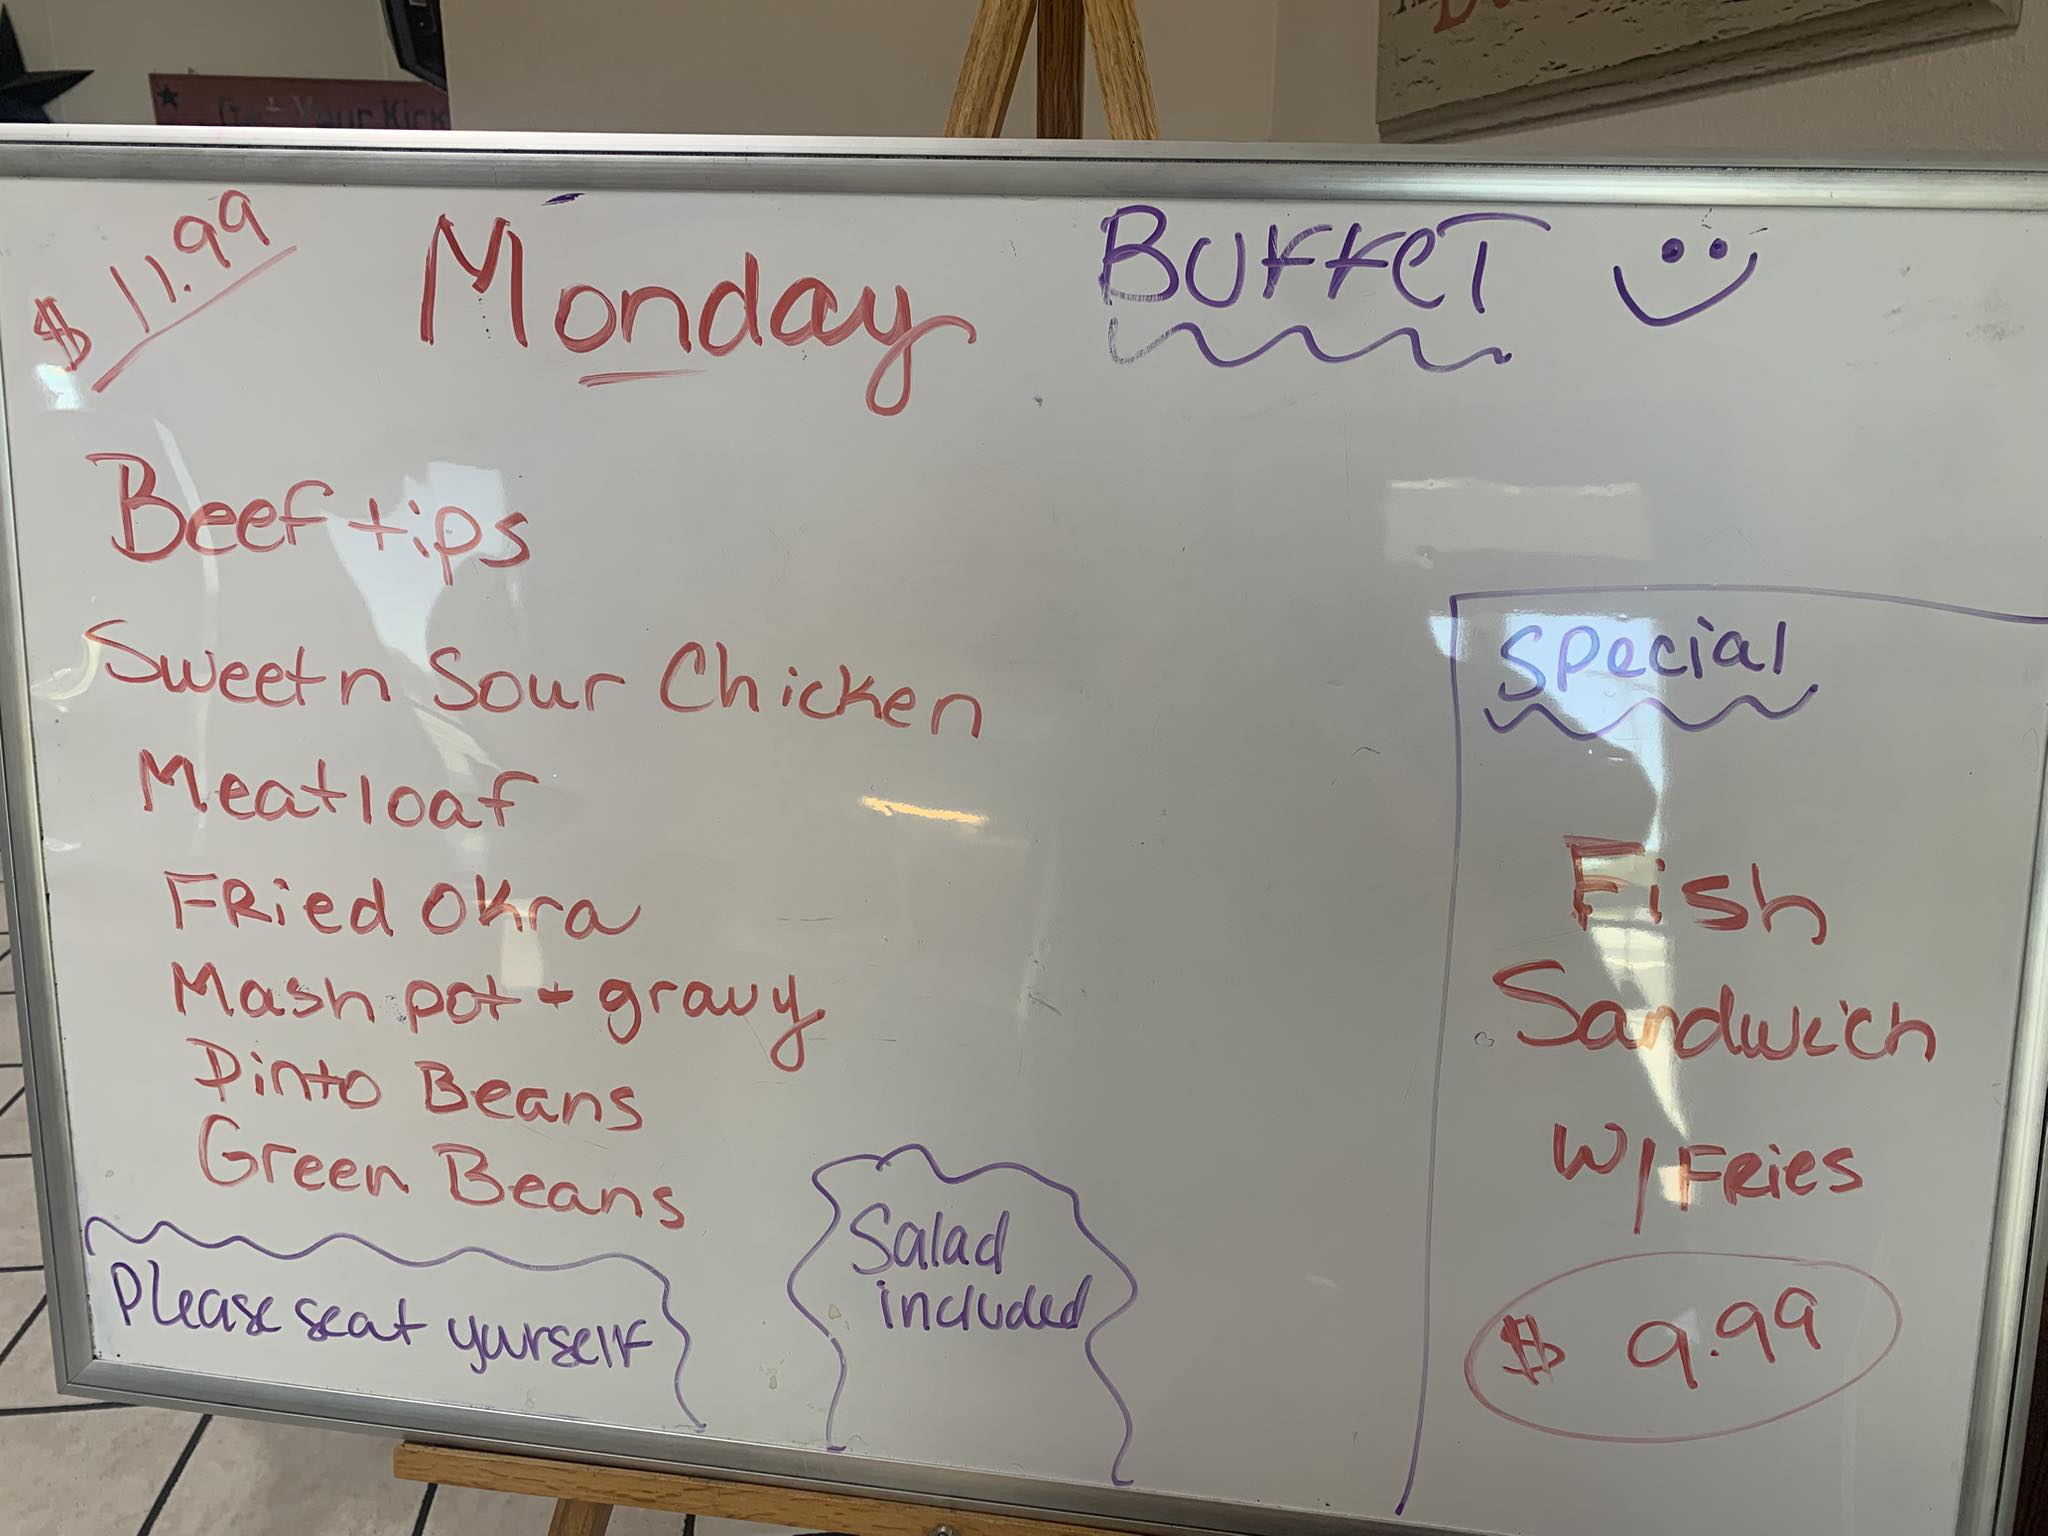 Get Your Kick
$ 11.99
Monday BUFFET
Beef tips
Sweet n Sour Chicken
Meatloaf
FRied OKra
Mash pot + gravy
Pinto Beans
Green Beans
Please seat yourself
Salad
included
Special
Fish
Sandwich
W/FRies
$ 9.99